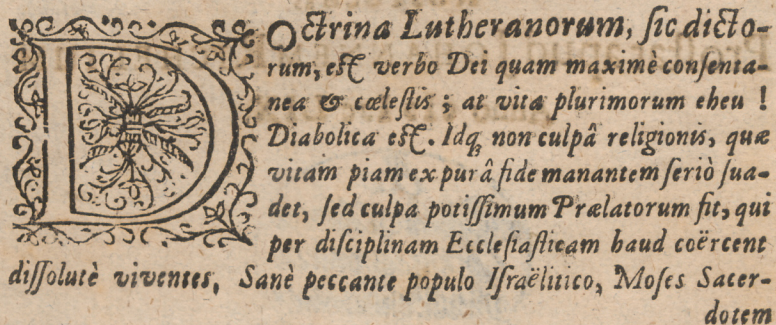 DOctrina Lutheranorum, ſic dicto-
rum, eſt verbo Dei quam maximè conſenta-
nea & cæleſtis; at vita plurimorum eheu !
Diabolica eſt. Idq; non culpâ religionis, quæ
vitam piam ex purâ fide manantem ſeriò ſua-
det, ſed culpa potiſſimum Prælatorum fit, qui
per diſciplinam Eccleſiaſticam haud coërcent
diſſolutè viventes, Sanè peccante populo Iſraëlitico, Moſes Sacer-
dotem